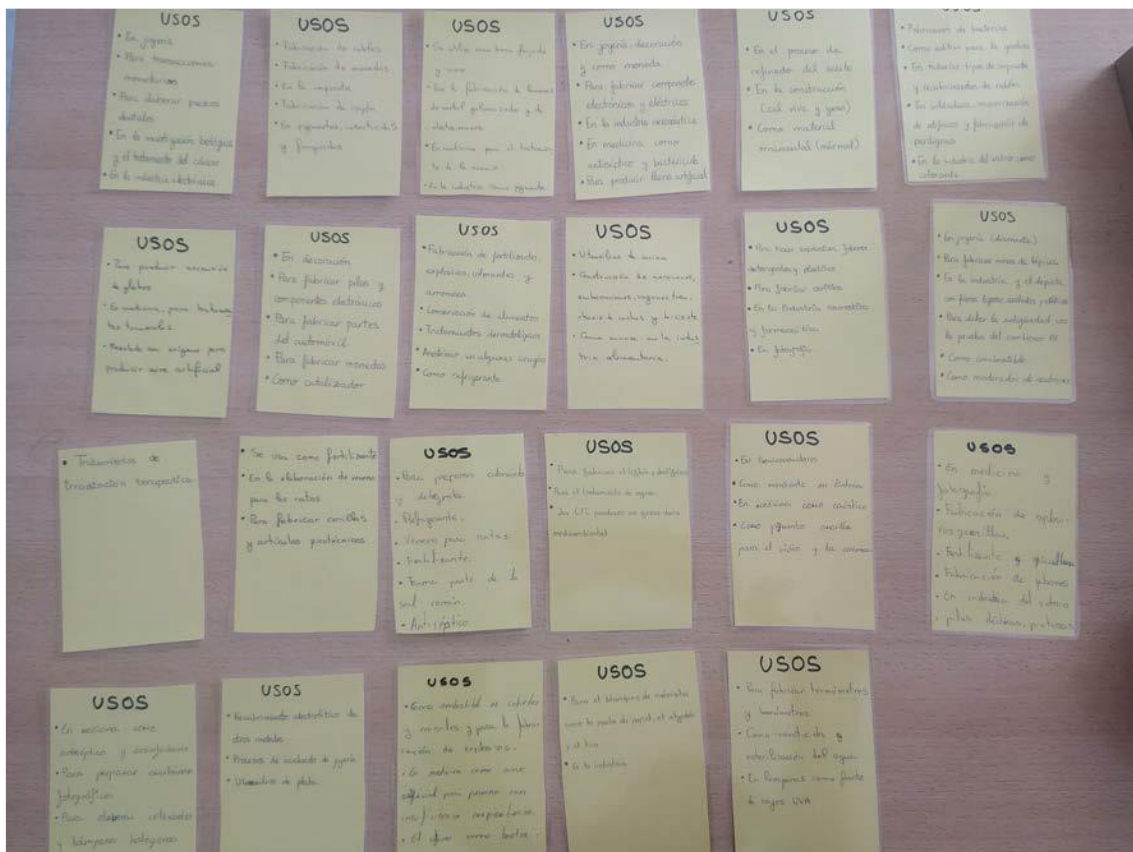 USOS
• En joyería
• Para transacciones
monetarias
• Para elaborar puentes
dentales
• En la investigación biológica
y el tratamiento del cáncer
• En la industria electrónica
USOS
• Fabricación de cables
• Fabricación de monedas
• En la imprenta
• Fabricación de
• En pigmentos, insecticidas
y fungicidas
USOS
• Se utiliza
y
• En la fabricación de
de metal galvanizado y de
• En medicina para el tratamien
to de la anemia
• En la industria como pigmento
USOS
• En joyería, decoración
y como moneda
• Para fabricar componentes
electrónicos y eléctricos
• En la industria
• En medicina como
antiséptico y bactericida
• Para producir lluvia artificial
USOS
• En el proceso de
refinado del aceite
• En la construcción
(cal viva y yeso)
• Como material
ornamental (mármol)
USOS
• Fabricación de baterías
• Como aditivo para la gasolina
• En tuberías, tipos de imprenta
y recubrimientos de cables
• En soldadura, insonorización
de edificios y fabricación de
• En la industria del vidrio como
colorante
USOS
• Para producir
de globos
• En medicina, para
tos tumorales
• Mezclado con oxígeno para
producir aire artificial
USOS
• En decoración
• Para fabricar pilas y
componentes electrónicos
• Para fabricar partes
del automóvil
• Para fabricar monedas
• Como catalizador
USOS
• Fabricación de fertilizantes,
explosivos, colorantes y
amoniaco
• Conservación de alimentos
• Tratamientos dermatológicos
• Anestésico en algunas cirugías
• Como refrigerante
USOS
• Utensilios de cocina
• Construcción de aeronaves,
embarcaciones,
de coches y bicicletas
• Como envase en la indus
tria alimentaria.
USOS
• Para hacer
detergentes y plásticos
• Para fabricar cerillas
• En la industria cosmética
y farmacéutica
• En fotografía
USOS
• En joyería (diamante)
• Para fabricar minas de lápices
• En la industria, y el deporte,
con fibras ligeras,
• Para datar la antigüedad con
la prueba del carbono 14
• Como combustible
• Como moderador de neutrones
• Tratamientos de
terapéutica
• Se usa como fertilizante
• En la elaboración de veneno
para las ratas
• Para fabricar cerillas
y artículos pirotécnicos
USOS
• Para preparar colorantes
y detergentes
• Refrigerante.
• Veneno para ratas
• Fertilizante.
• Forma parte de la
sal común.
• Antiséptico.
USOS
• Para fabricar el lejías y
• Para el tratamiento de aguas
• Los CFC producen un grave daño
medioambiental
USOS
• En semiconductores
• Como
• En medicina como
• Como pigmento amarillo
para el vidrio y la cerámica
USOS
• En medicina y
fotografía
• Fabricación de explosi
vos y cerillas.
• Fertilizante
• Fabricación de jabones
• En industria del vidrio
• pilas eléctricas,
USOS
• En medicina como
antiséptico y desinfectante
• Para preparar emulsiones
fotográficas
• Para elaborar colorantes
y lámparas halógenas
USOS
• Recubrimiento electrolítico de
otros metales
• Procesos de acabado de joyería
• Utensilios de plata
USOS
• Como combustible en cohetes
y misiles y para la fabri
cación de explosivos.
• En medicina como aire
artificial para personas con
insuficiencia respiratoria
• El
USOS
• Para el blanqueo de materiales
como la pasta de papel, el algodón
y el lino
• En la industria
USOS
• Para fabricar termómetros
y barómetros
• Como insecticida y
esterilización del agua
• En lámparas como fuente
de rayos UVA